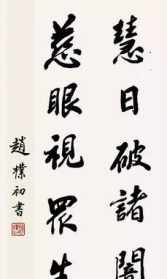 慧日破諸闇
慈眼視眾生
趙樸初書